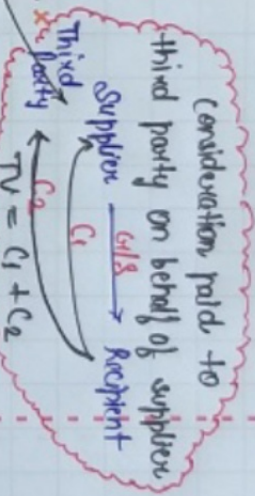 Consideration paid to
third party on behalf of supplier
Supplier G/S Recipient
C1
Third
Party
C2
TV = C1 + C2